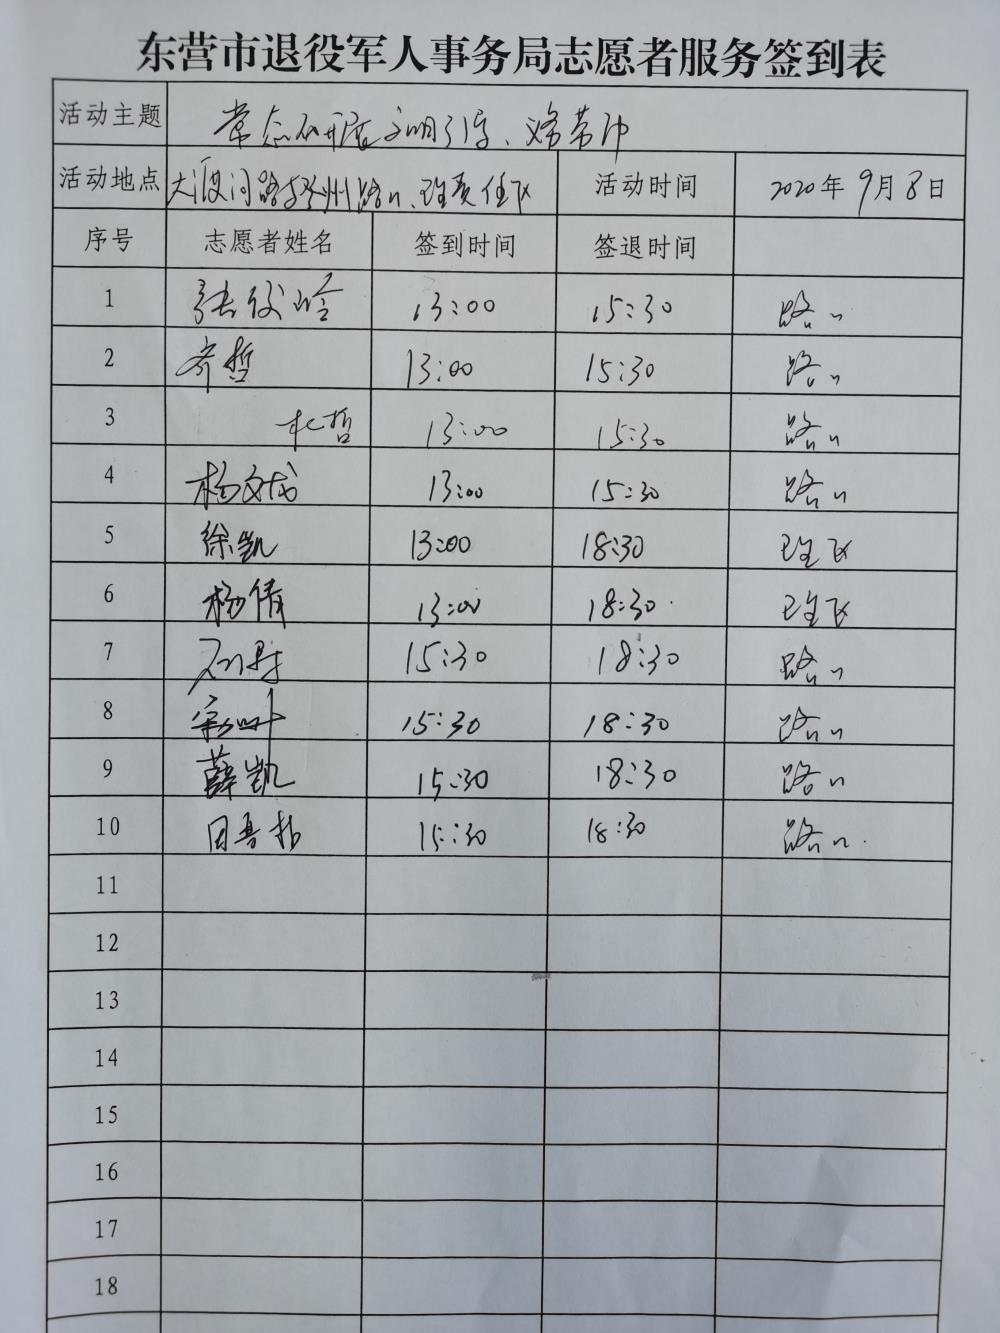 东营市退役军人事务局志愿者服务签到表
活动主题 常态化开展文明引导、
活动地点 大渡河路与胶州路口、责任区 活动时间 2020年9月8日
序号 志愿者姓名 签到时间 签退时间
1 13:00 15:30 路口
2 齐哲 13:00 15:30 路口
3 杜哲 13:00 15:30 路口
4 杨文成 13:00 15:30 路口
5 徐凯 13:00 18:30
6 杨倩 13:00 18:30
7 15:30 18:30 路口
8 15:30 18:30 路口
9 薛凯 15:30 18:30 路口
10 15:30 18:30 路口
11
12
13
14
15
16
17
18